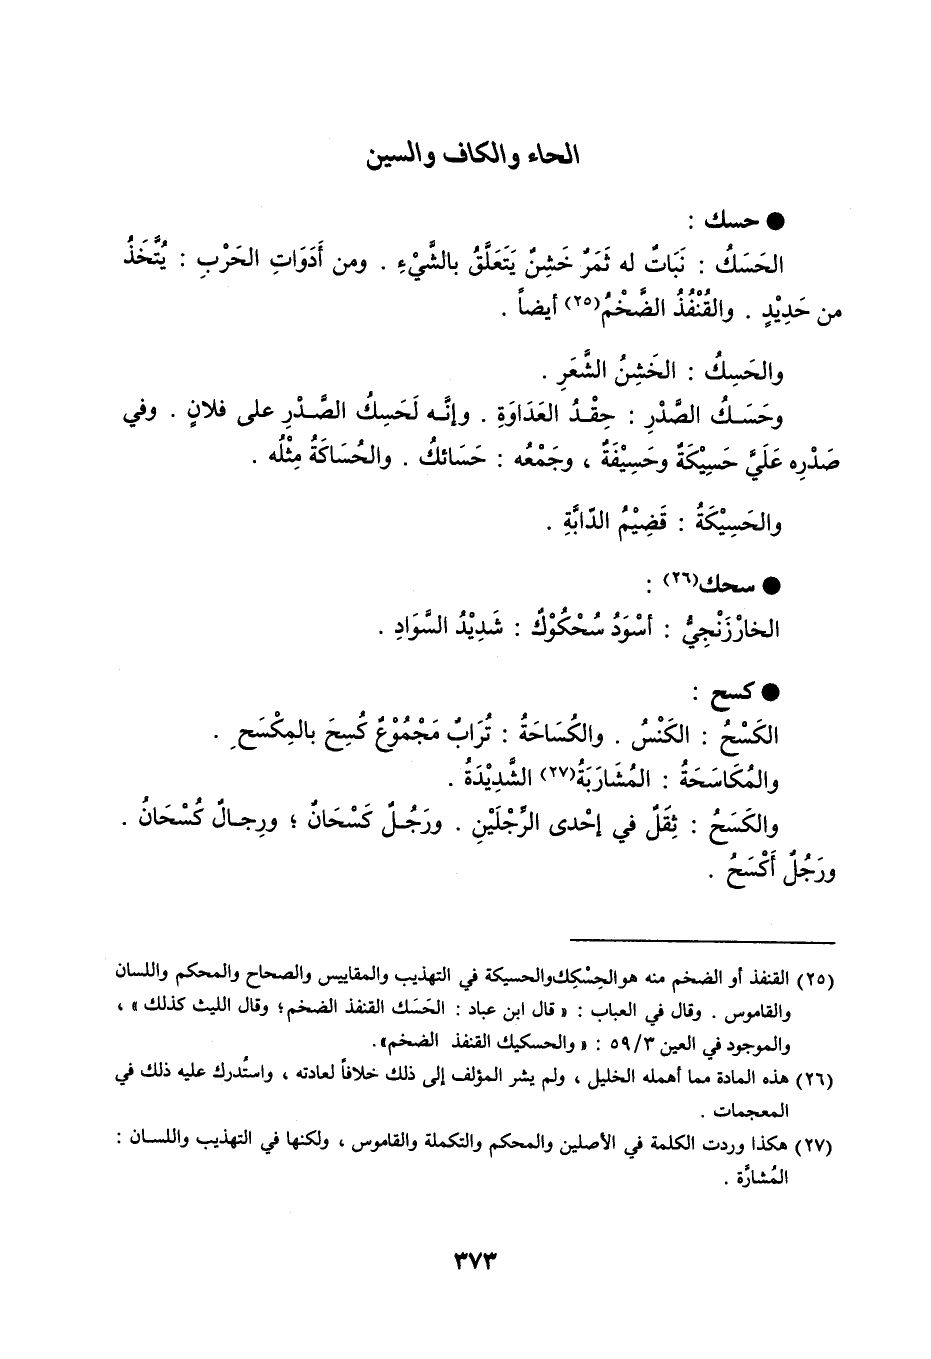 الحاء والكاف والسين
● حسك :
الحَسَكُ : نَبَاتٌ له ثَمَرٌ خَشِنٌ يَتَعَلَّقُ بالشَّيْءِ . ومن أَدَوَاتِ الحَرْبِ : يُتَّخَذُ
من حَدِيْدٍ . والقُنْفُذُ الضَّخْمُ(٢٥) أيضاً .
والحَسِكُ : الخَشِنُ الشَّعَرِ .
وحَسَـكُ الصَّدْرِ : حِقْـدُ العَدَاوَةِ . وإنَّـه لَحَسِكُ الصَّـدْرِ على فلانٍ . وفي
صَدْرِه عَلَيَّ حَسِيْكَةٌ وحَسِيْفَةٌ ، وجَمْعُه : حَسَائكُ . والحُسَاكَةُ مِثْلُه .
والحَسِيْكَةُ : قَضِيْمُ الدّابَّةِ .
● سحك(٢٦) :
الخارْزَنْجِيُّ : أسْوَدُ سُحْكُوْكٌ : شَدِيْدُ السَّوَادِ .
● كسح :
الكَسْحُ : الكَنْسُ . والكُسَاحَةُ : تُرَابٌ مَجْمُوْعٌ كُسِحَ بالمِكْسَحِ .
والمُكَاسَحَةُ : المُشَارَبَةُ(٢٧) الشَّدِيْدَةُ .
والكَسَحُ : ثِقَلٌ في إحْدى الرِّجْلَيْنِ . ورَجُـلٌ كَسْحَانٌ ؛ ورِجـالٌ كُسْحَانُ .
ورَجُلٌ أَكْسَحُ .
(٢٥) القنفذ أو الضخم منه هو الحِسْكِك والحسيكة في التهذيب والمقاييس والصحاح والمحكم واللسان
والقاموس . وقال في العباب : « قال ابن عباد : الحَسَك القنفذ الضخم ؛ وقال الليث كذلك » ،
والموجود في العين ٥٩/٣ : « والحسكيك القنفذ الضخم ».
(٢٦) هذه المادة مما أهمله الخليل ، ولم يشر المؤلف إلى ذلك خلافاً لعادته ، واستُدرك عليه ذلك في
المعجمات .
(٢٧) هكذا وردت الكلمة في الأصلين والمحكم والتكملة والقاموس ، ولكنها في التهذيب واللسـان :
المُشارَّة .
٣٧٣